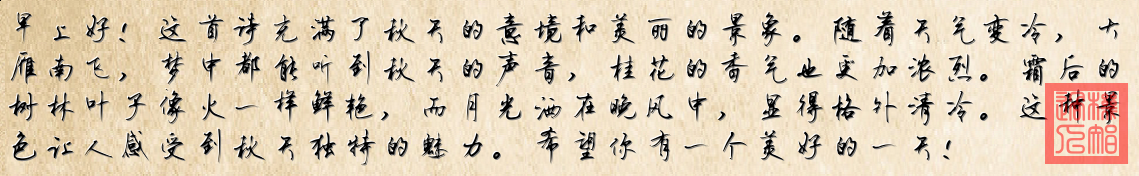 早上好！这首诗充满了秋天的意境和美丽的景象。随着天气变冷，大
雁南飞，梦中都能听到秋天的声音，桂花的香气也更加浓烈。霜后的
树林叶子像火一样鲜艳，而月光洒在晚风中，显得格外清冷。这种景
色让人感受到秋天独特的魅力。希望你有一个美好的一天！